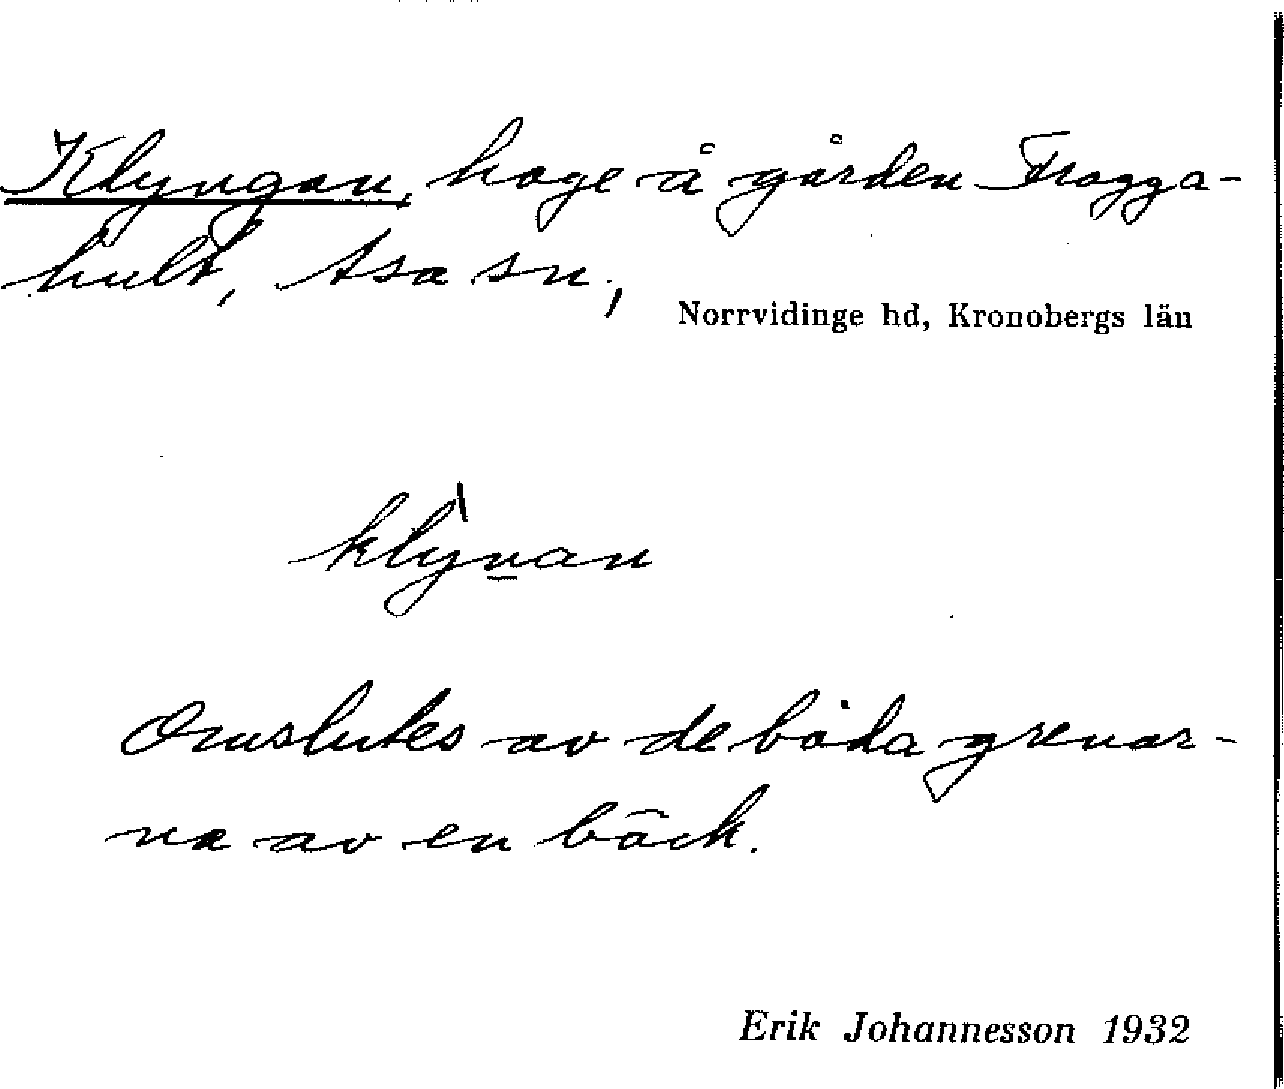 Klyngan, hage å gården Fragga-
hult, Asa sn,
Norrvidinge hd, Kronobergs län
klỳn̲an
Omslutes av de båda grenar-
na av en bäck.
Erik Johannesson 1932